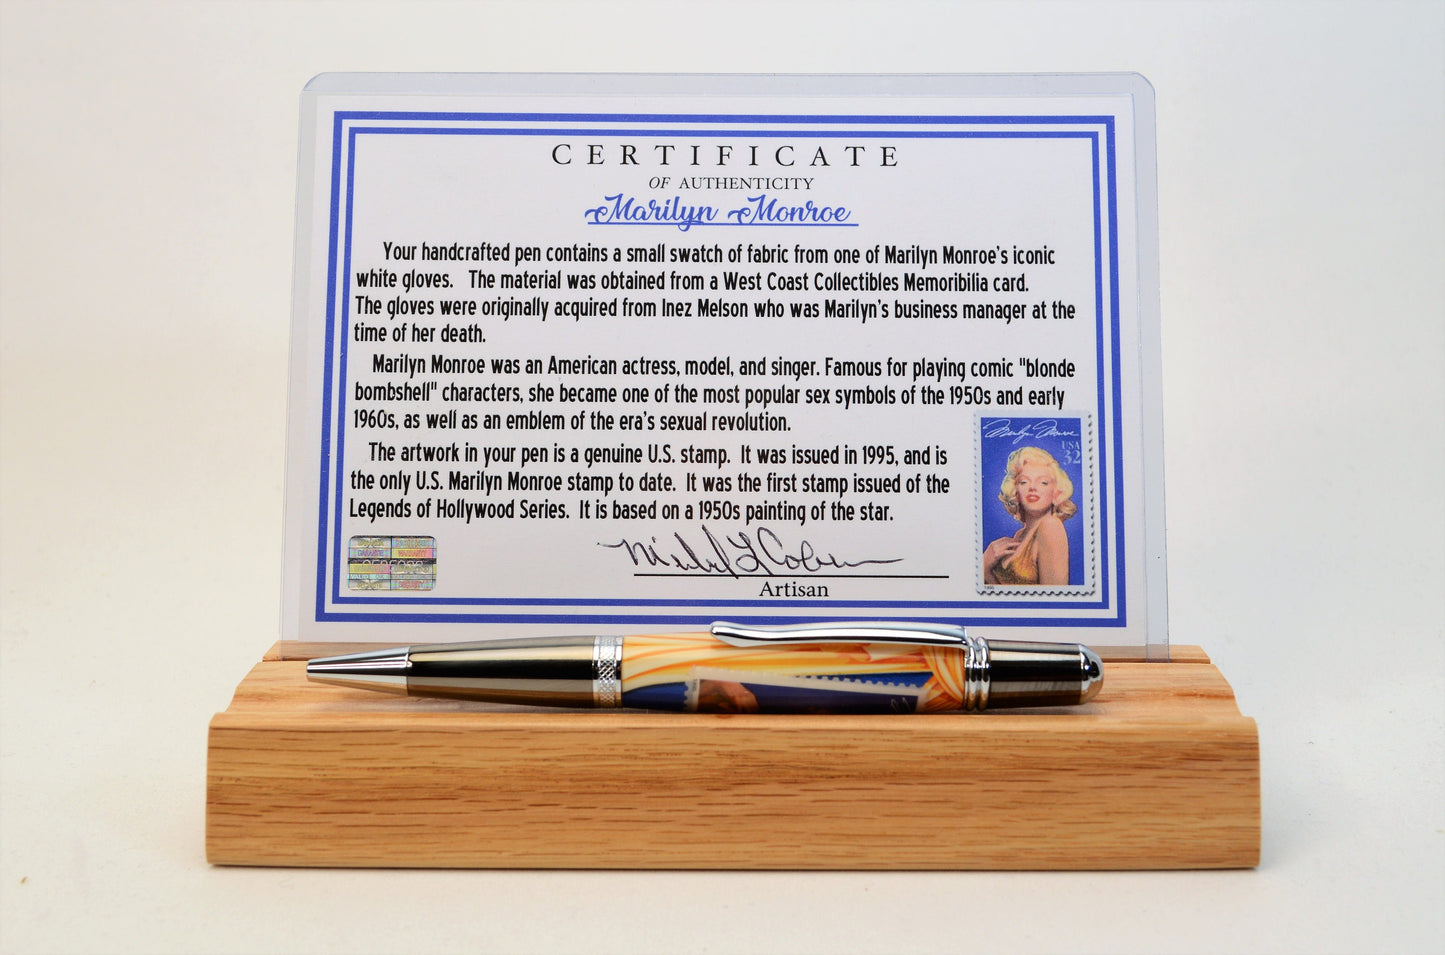 CERTIFICATE
OF AUTHENTICITY
Marilyn Monroe
Your handcrafted pen contains a small swatch of fabric from one of Marilyn Monroe's iconic
white gloves. The material was obtained from a West Coast Collectibles Memoribilia card.
The gloves were originally acquired from Inez Melson who was Marilyn's business manager at the
time of her death.
Marilyn Monroe was an American actress, model, and singer. Famous for playing comic "blonde
bombshell" characters, she became one of the most popular sex symbols of the 1950s and early
1960s, as well as an emblem of the era's sexual revolution.
The artwork in your pen is a genuine U.S. stamp. It was issued in 1995, and is
the only U.S. Marilyn Monroe stamp to date. It was the first stamp issued of the
Legends of Hollywood Series. It is based on a 1950s painting of the star.
Artisan
Marilyn Monroe
USA
32
1995